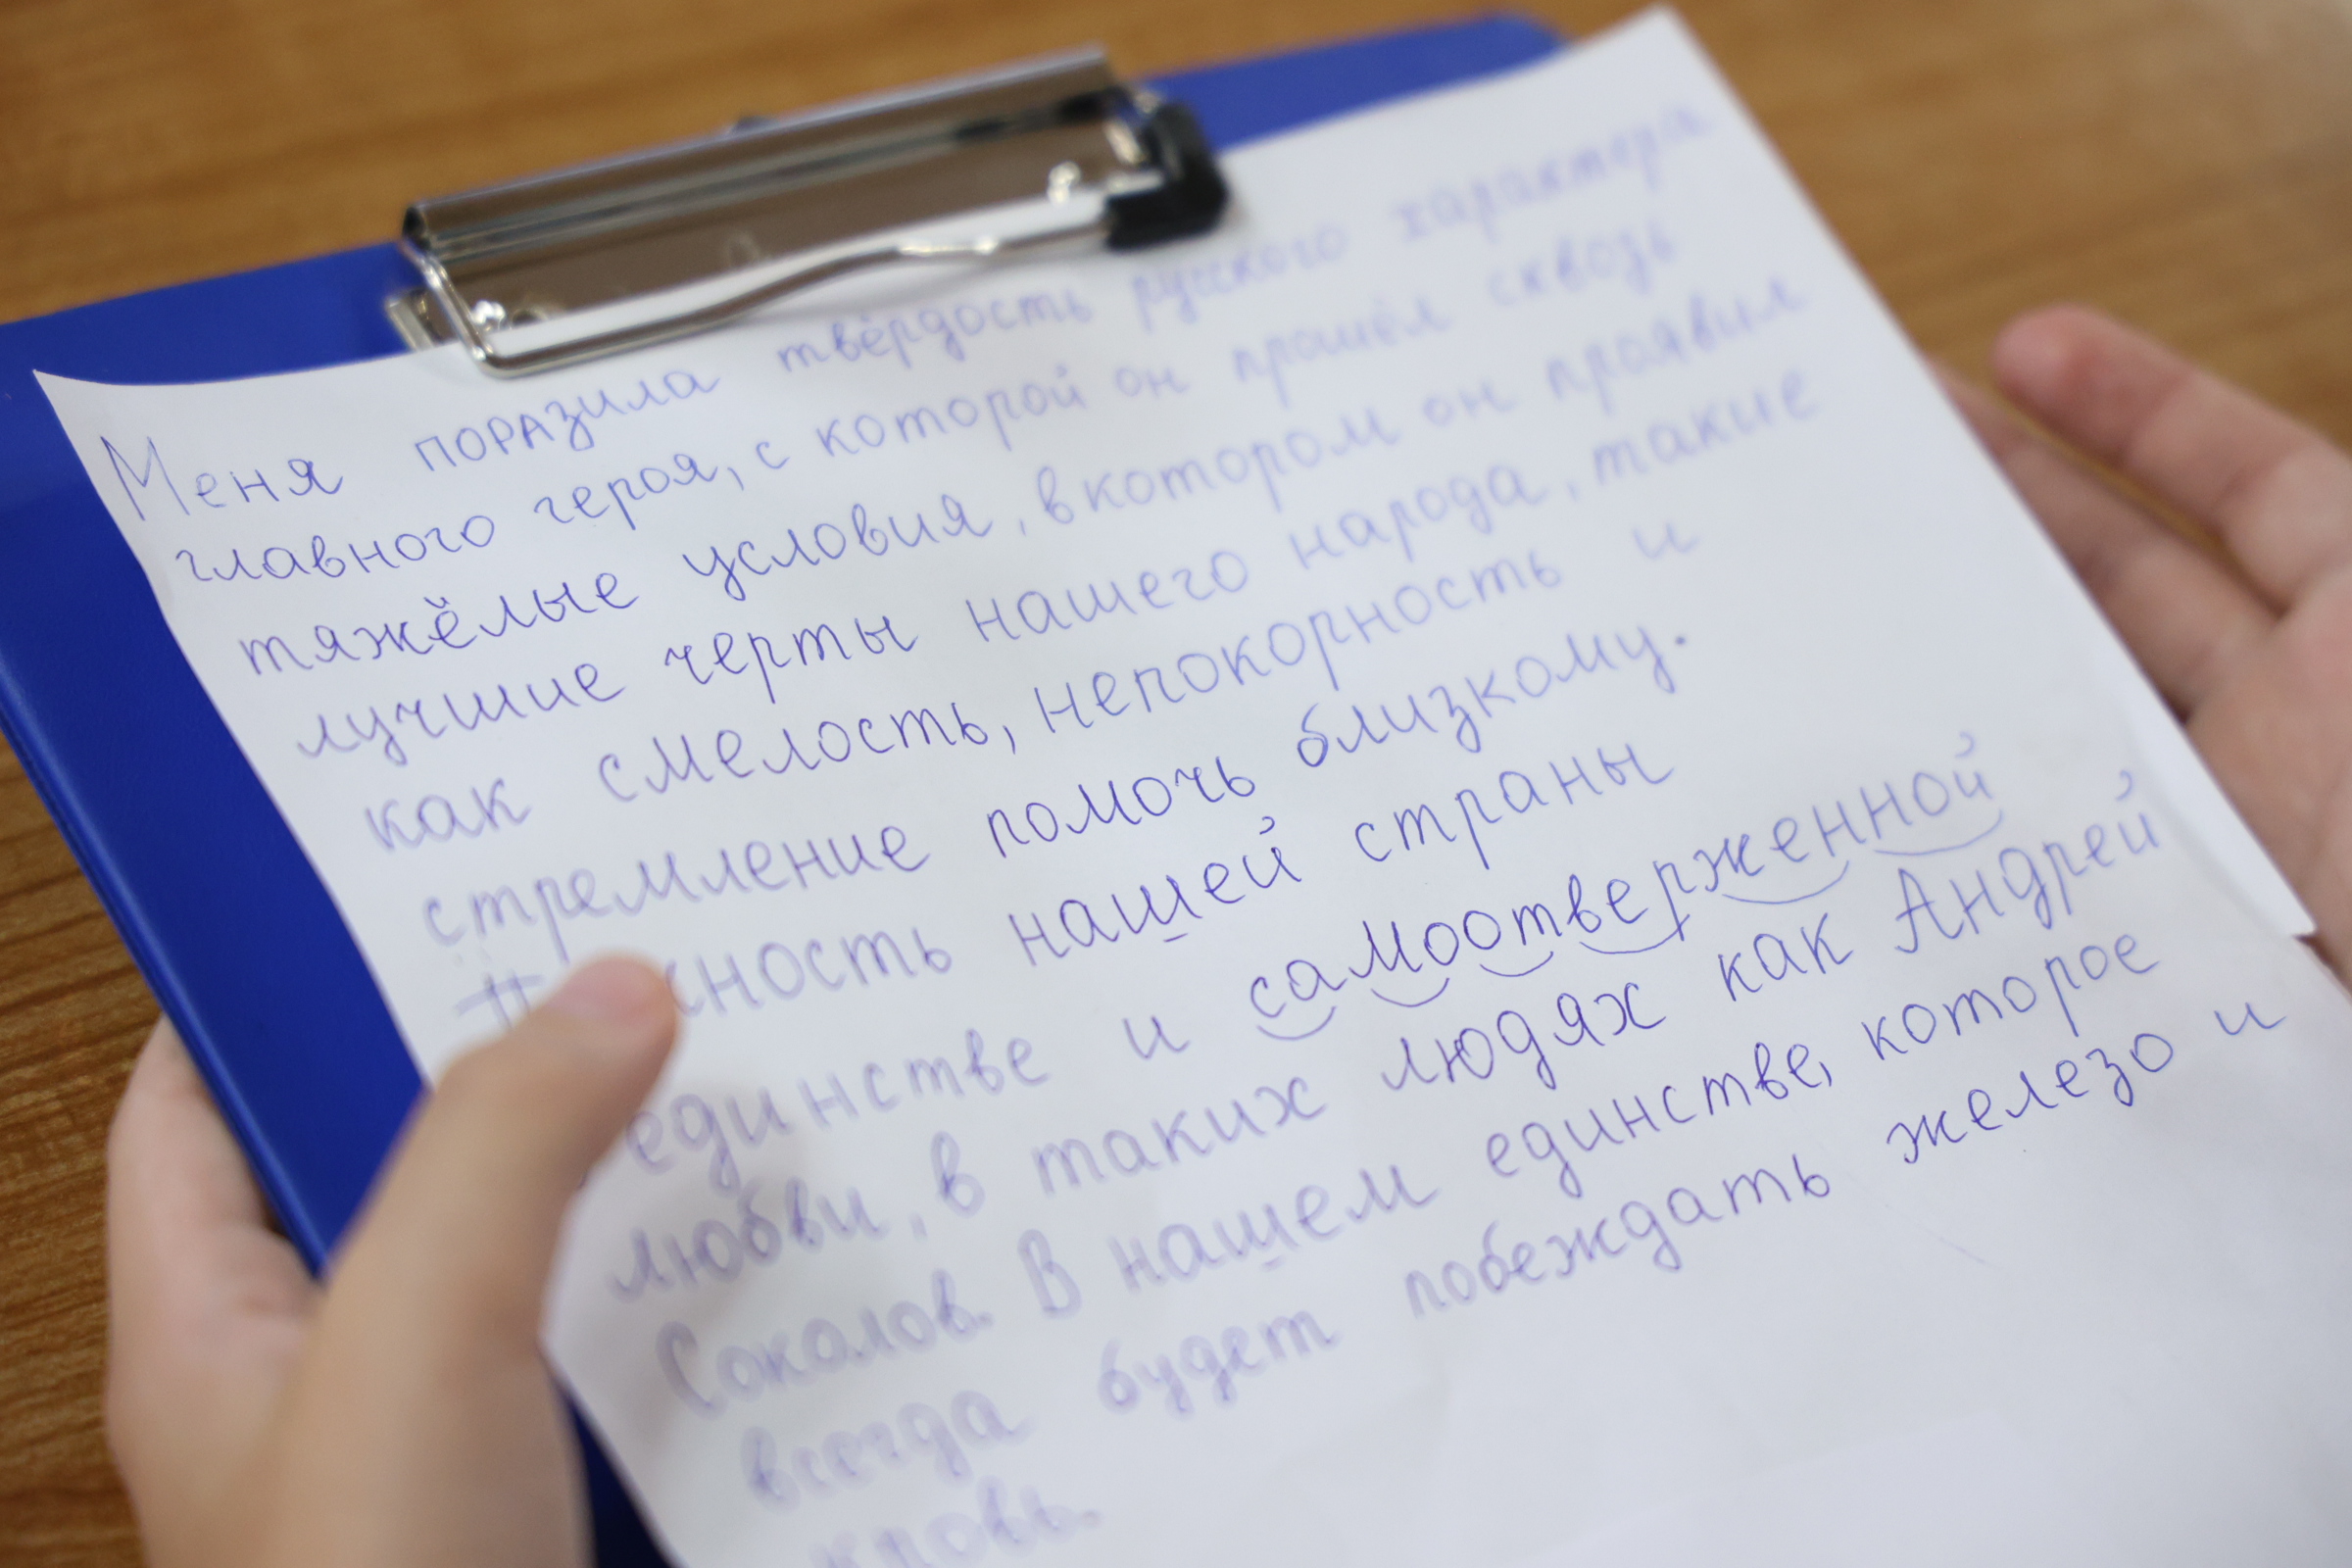 Меня поразила твёрдость русского характера
главного героя, с которой он прошёл сквозь
тяжёлые условия, в котором он проявил
лучшие черты нашего народа, такие
как смелость, непокорность и
стремление помочь близкому.
нашей страны
единстве и самоотверженной
любви, в таких людях как Андрей
Соколов. В нашем единстве, которое
всегда будет побеждать железо и
кровь.